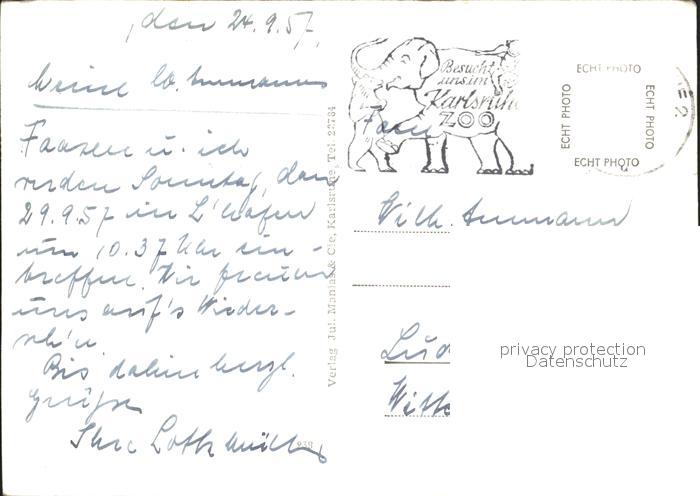 , den 24.9.57.
Meine lb. Ammanns
u. ich
werden Sonntag, den
29.9.57 in L'hafen
um 10.37 Uhr ein-
treffen. Wir freuen
uns auf's Wieder-
seh'n.
Bis dahin herzl.
Grüße
Ihre
Verlag Jul. Manias & Cie, Karlsruhe, Tel. 22784
Besucht
uns im
Karlsruher
ZOO
Frau
Wilh. Ammann
ECHT PHOTO
ECHT PHOTO
ECHT PHOTO
ECHT PHOTO
privacy protection
Datenschutz